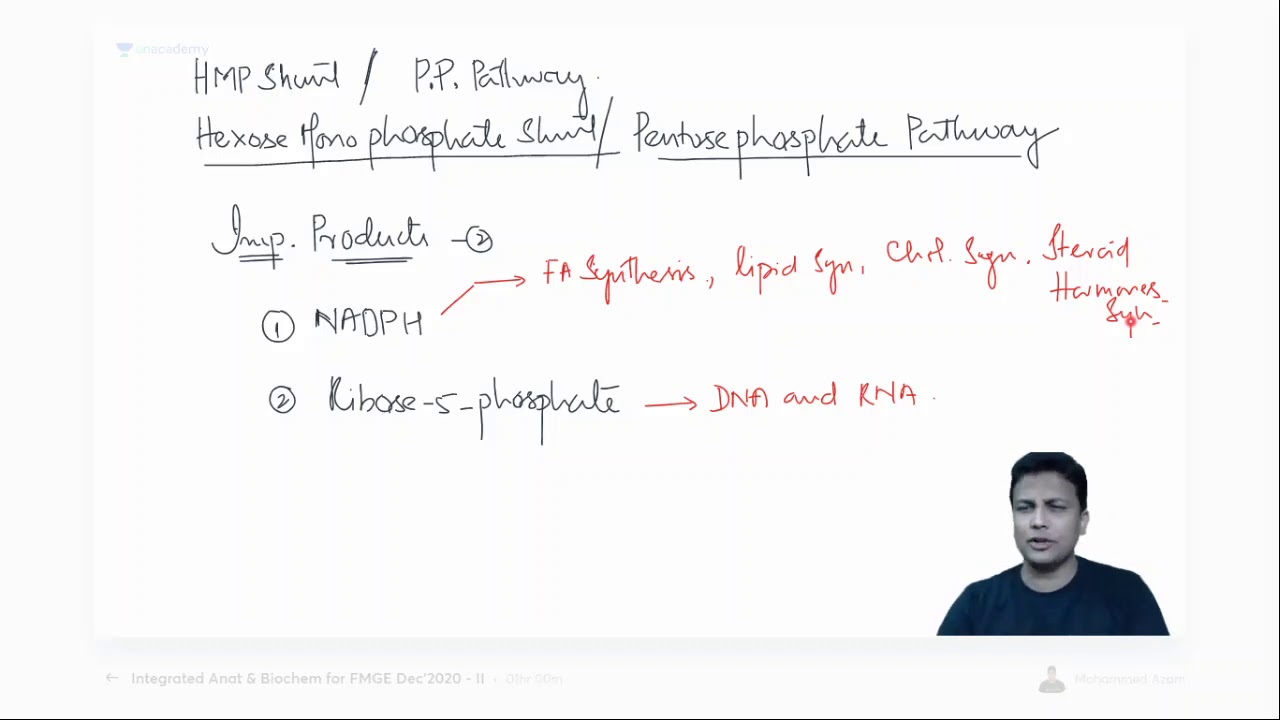 unacademy
HMP Shunt / P.P. Pathway.
Hexose Mono phosphate Shunt / Pentose phosphate Pathway
Imp. Products - ②
① NADPH → FA Synthesis, lipid Syn, Chol. Syn. Steroid
Hormones
Syn.
② Ribose-5-phosphate → DNA and RNA.
← Integrated Anat & Biochem for FMGE Dec'2020 - II • 01hr 00m
Mohammed Azam